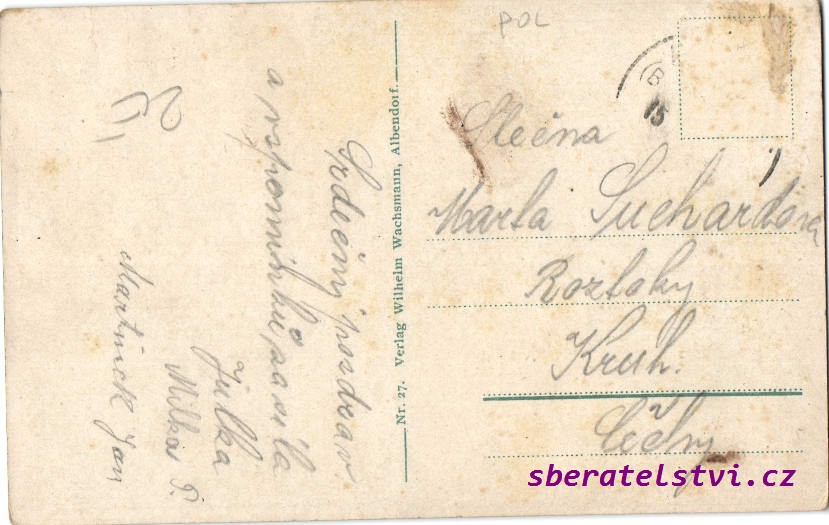 POL
Srdečný pozdrav
a vzpomínku zasílá
Julka
Milka P.
Martinek Jan
Nr. 27. Verlag Wilhelm Wachsmann, Albendorf.
Slečna
Marta Suchardova
Roztoky
Kruh.
Čechy
sberatelstvi.cz